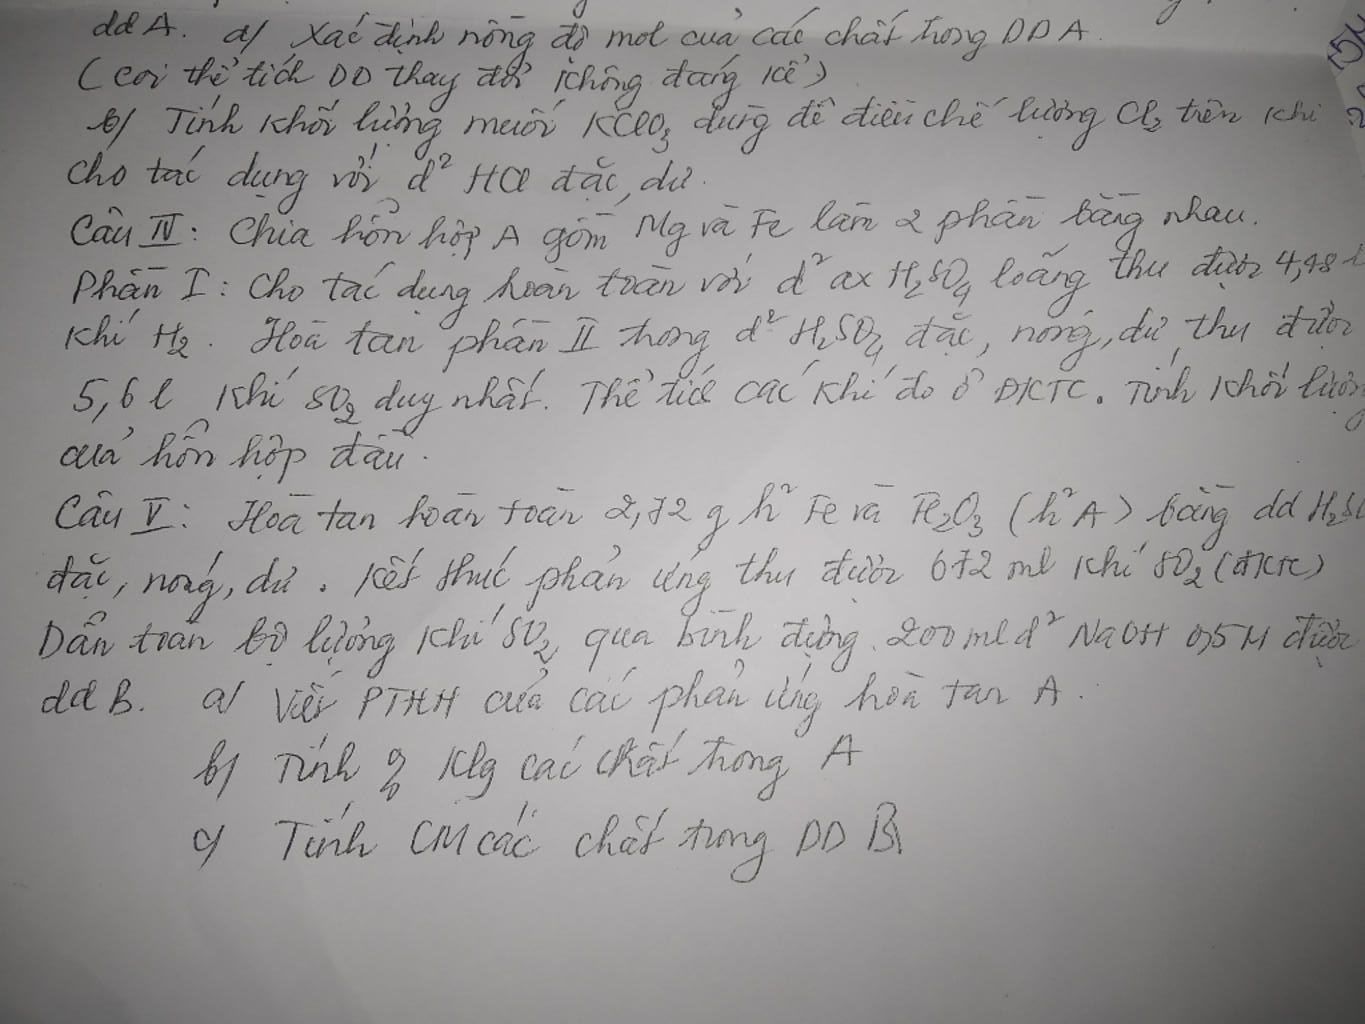 ddA. a/ Xác định nồng độ mol của các chất trong DD A.
(coi thể tích DD thay đổi không đáng kể)
b/ Tính khối lượng muối KClO3 dùng để điều chế lượng Cl2 trên khi
cho tác dụng với d² HCl đặc, dư.
Câu IV: Chia hỗn hợp A gồm Mg và Fe làm 2 phần bằng nhau.
Phần I: Cho tác dụng hoàn toàn với d² ax H2SO4 loãng thu được 4,48 l
khí H2. Hoà tan phần II trong d² H2SO4 đặc, nóng, dư, thu được
5,6 l khí SO2 duy nhất. Thể tích các khí đo ở ĐKTC. Tính khối lượng
của hỗn hợp đầu.
Câu V: Hoà tan hoàn toàn 2,72 g h² Fe và Fe2O3 (h² A) bằng dd H2SO
đặc, nóng, dư. Kết thúc phản ứng thu được 672 ml khí SO2 (đktc)
Dẫn toàn bộ lượng khí SO2 qua bình đựng 200 ml d² NaOH 0,5M được
dd B. a/ Viết PTHH của các phản ứng hoà tan A.
b/ Tính % klg các chất trong A
c/ Tính CM các chất trong DD B